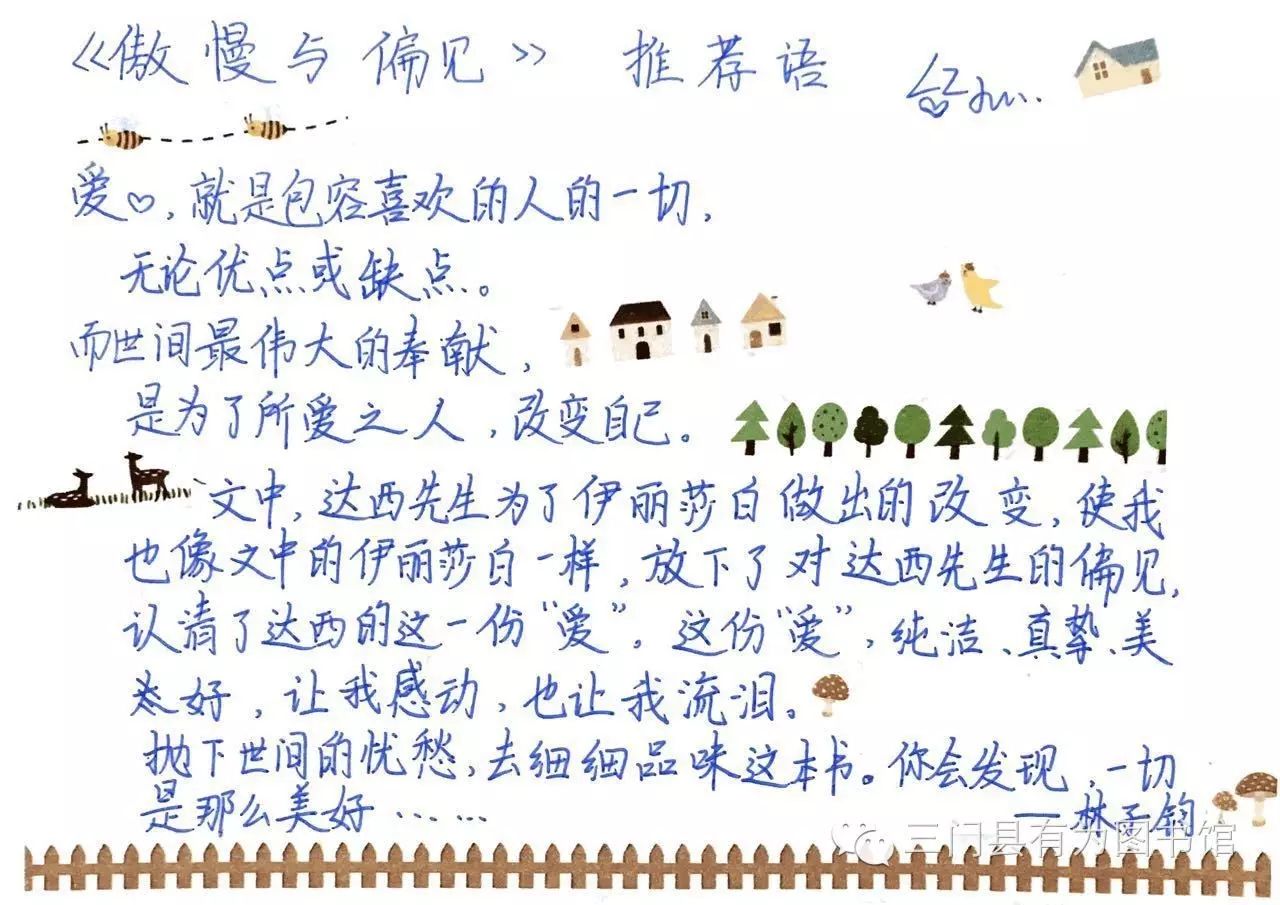 《傲慢与偏见》 推荐语
爱♡,就是包容喜欢的人的一切,
无论优点或缺点。
而世间最伟大的奉献,
是为了所爱之人,改变自己。
文中,达西先生为了伊丽莎白做出的改变,使我
也像文中的伊丽莎白一样,放下了对达西先生的偏见,
认清了达西的这一份“爱”。这份“爱”,纯洁、真挚、美
好,让我感动,也让我流泪。
抛下世间的忧愁,去细细品味这本书。你会发现,一切
是那么美好……
——林子钧
三门县有为图书馆